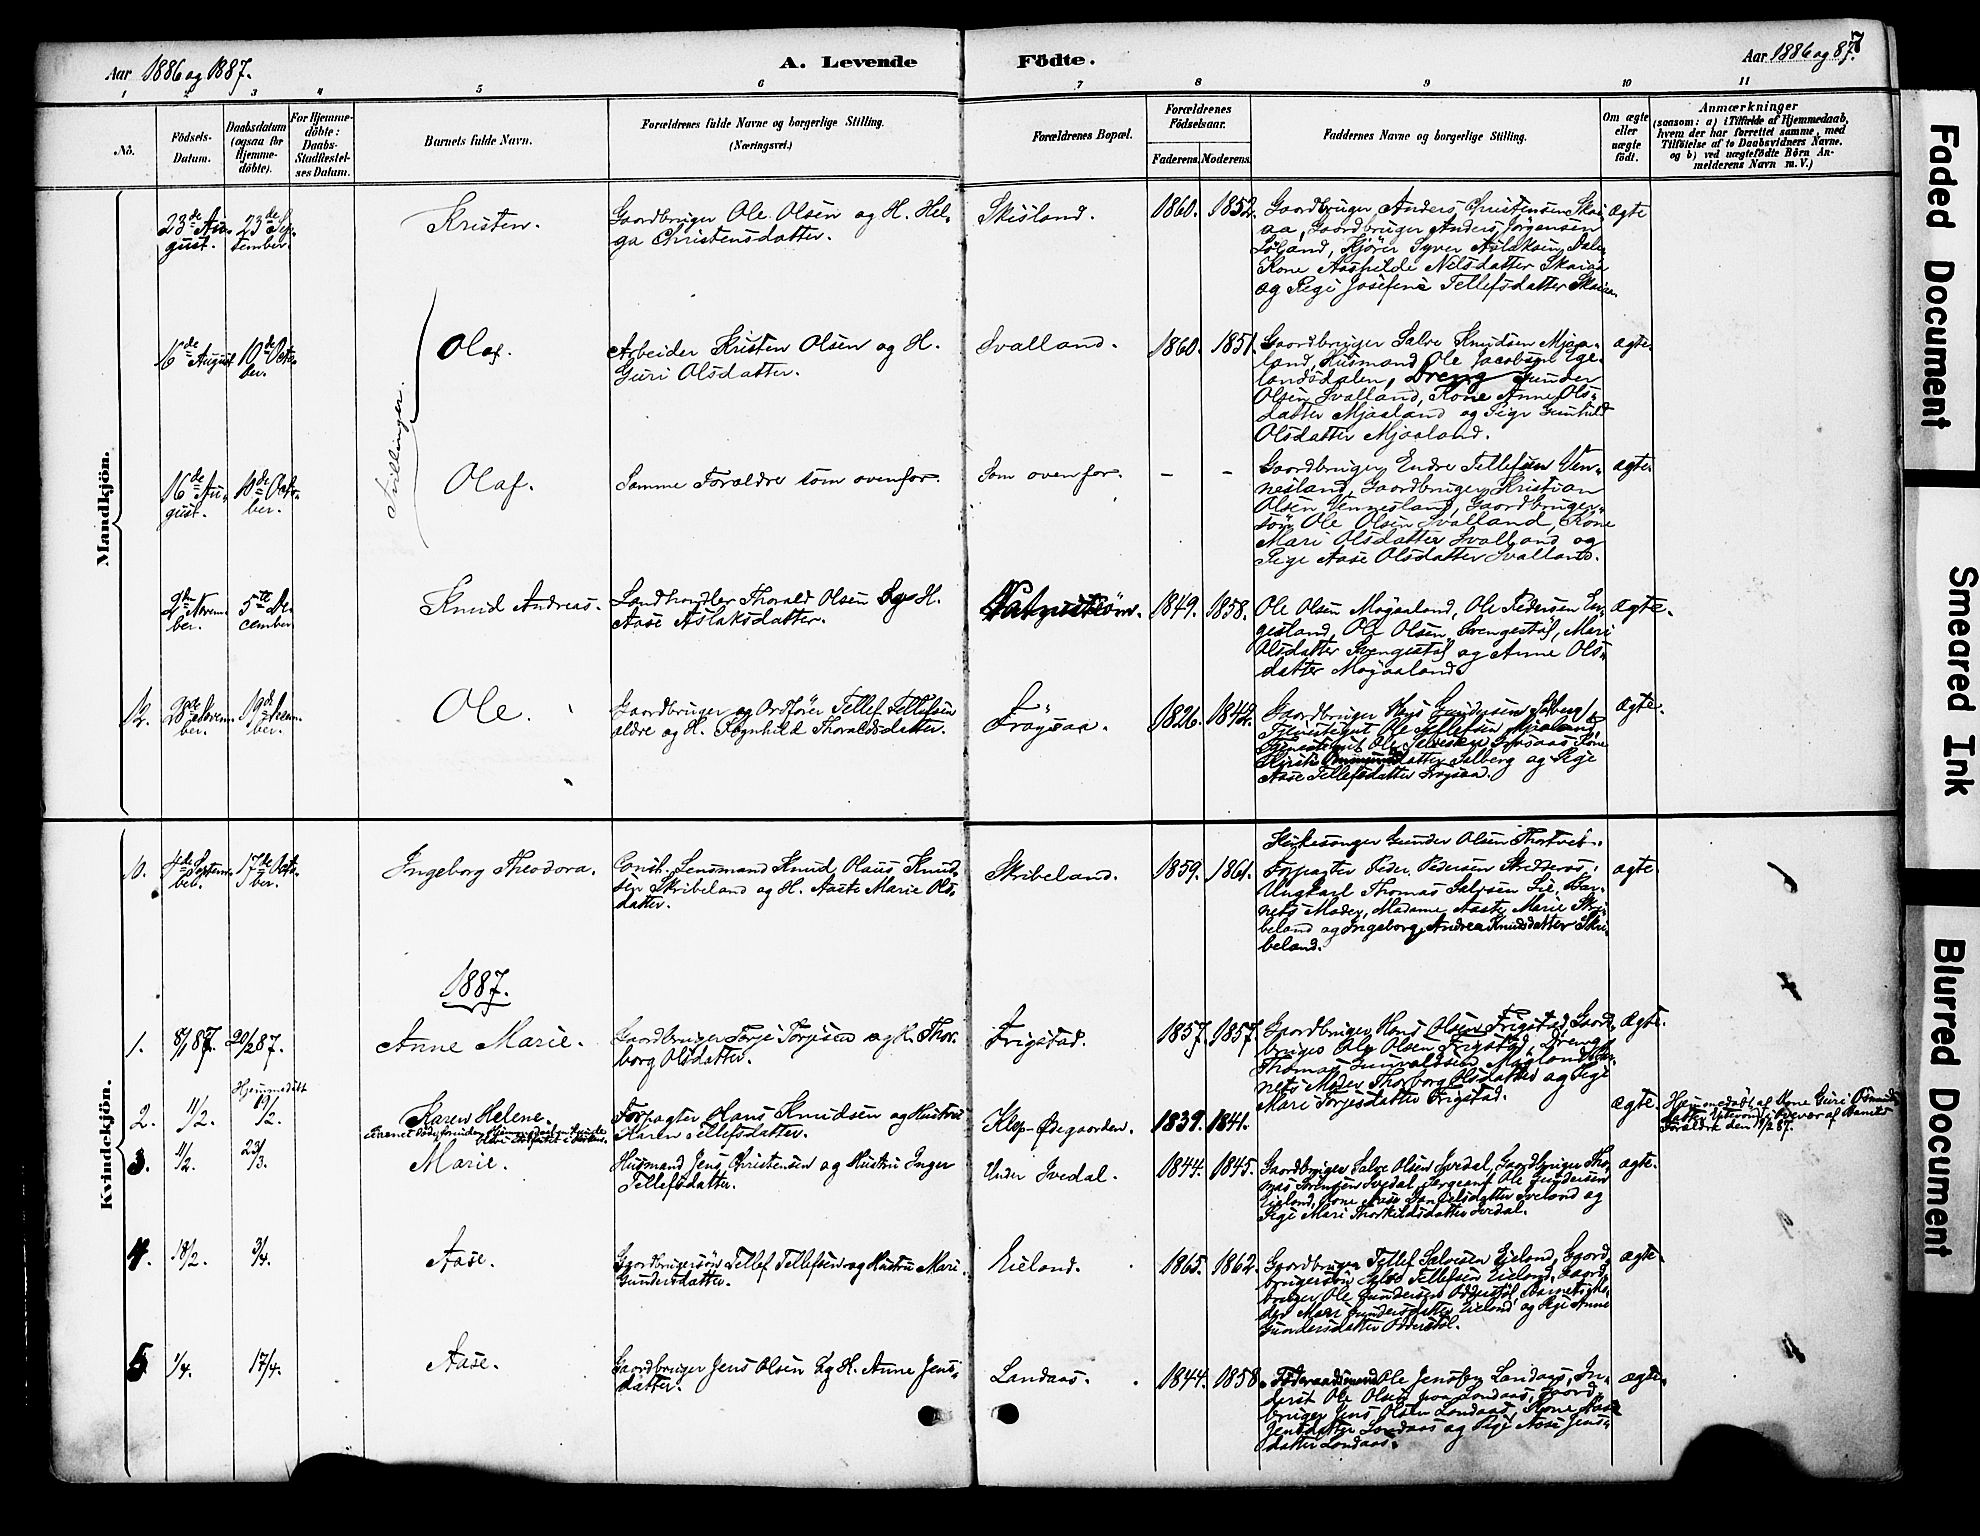 Aar 1886 og 1887.
A. Levende
Födte.
Aar 1886 og 87.
7
1 2 3 4 5 6 7 8 9 10 11
No.
Födsels-
Datum.
Daabsdatum
(ogsaa for
Hjemme-
döbte).
For Hjemme-
döbte:
Daabs-
Stadfæstel-
ses Datum.
Barnets fulde Navn.
Forældrenes fulde Navne og borgerlige Stilling.
(Næringsvei.)
Forældrenes Bopæl.
Forældrenes
Födselsaar.
Faderens. Moderens.
Faddernes Navne og borgerlige Stilling.
Om ægte
eller
uægte
födt.
Anmærkninger
(saasom: a) i Tilfælde af Hjemmedaab,
hvem der har forrettet samme, med
Tilföielse af to Daabsvidners Navne.
og b) ved uægtefödte Börn An-
melderens Navn m. V.)
Mandkjön.
23de Au-
gust.
23de Sep-
tember
Kristen.
Gaardbruger Ole Olsen og H. Hel-
ga Christensdatter.
Skisland.
1860. 1852.
Gaardbruger Anders Christensen Skai-
aa, Gaardbruger Anders Jørgensen
Kone Aashilde Nilsdatter Skaiaa
og Pige Josefine Tellefsdatter Skaiaa
ægte
Tvillinger.
16de August
10de Octo-
ber.
Olaf.
Arbeider Kristen Olsen og H.
Guri Olsdatter.
Svalland.
1860. 1851.
Gaardbruger Salve Knudsen Mjaa-
land, Husmand Ole Jacobsen Ege-
landsdalen, Dreng Gunder
Olsen Svalland, Kone Anne Ols-
datter Mjaaland og Pige Gunhild
Olsdatter Mjaaland.
ægte.
16de Au-
gust.
10de Octo-
ber.
Olaf.
Samme Forældre som ovenfor.
Som ovenfor.
- -
Gaardbruger Endre Tellefsen Ven-
nesland, Gaardbruger Kristian
Olsen Vennesland, Gaardbruger-
søn Ole Olsen Svalland, Kone
Mari Olsdatter Svalland og
Pige Aase Olsdatter Svalland.
ægte.
Novem-
ber.
5te De-
cember
Knud Andreas.
Landhandler Thorald Olsen og H.
Aase Aslaksdatter.
1849. 1858.
Ole Olsen Mojaaland, Ole Pedersen En-
gesland, Ole Olsen Svengestøl, Mari
Olsdatter Svengestøl og Anne Ols-
datter Mojaaland.
ægte.
12.
28de Novem-
ber.
19de Decem-
ber.
Ole.
Gaardbruger og Ordfører Tellef Tellefsen
ældre og H. Ragnhild Thoraldsdatter.
Frøysaa.
1826. 1842.
Gaardbruger Gundersen Solberg,
datter Solberg og Pige
Aase Tellefsdatter Frøysaa.
ægte.
Kvindekjön.
10.
4de Septem-
ber.
17de Octo-
ber.
Ingeborg Theodora.
Const. Lensmand Knud Olaus Knud-
sen Skribeland og H. Aaste Marie Ols-
datter.
Skribeland.
1859. 1861.
Kirkesanger Gunder Olsen Thortveit.
Forpagter Peder Pedersen
Ungkarl Thomas Salvesen Lie, Bar-
nets Moder, Madame Aaste Marie Skri-
beland og Ingeborg Andrea Knudsdatter Skri-
beland.
ægte.
1887.
1.
8/1 87.
20/2 87.
Anne Marie.
Gaardbruger Torje Torjesen og H. Thor-
borg Olsdatter.
Frigstad.
1857. 1857.
Gaardbruger Hans Olsen Frigstad, Gaard-
bruger Ole Olsen Frigstad, Dreng
Thomas Gunvaldsen
nets Moder Thorborg Olsdatter og Pige
Mari Torjesdatter Frigstad.
ægte.
2.
11/2.
Hjemmedøbt
19/2.
Karen Helene.
Forpagter Hans Knudsen og Hustru
Karen Tellefsdatter.
Klep-Ødegaarden.
1839. 1841.
ægte.
Hjemmedøbt af Kone Guri
Forældre den 19/2 87.
3.
11/2.
23/3.
Marie.
Husmand Jens Christensen og Hustru Inger
Tellefsdatter.
Under Ivedal.
1844. 1845.
Gaardbruger Salve Olsen Ivedal, Gaardbruger Tho-
mas Sørensen Ivedal, Sergeant Ole Gundersen
Eieland, Kone Aase Danielsdatter Iveland og
Pige Mari Thorkildsdatter Ivedal.
ægte.
4.
18/2.
3/4.
Aase.
Gaardbrugersøn Tellef Tellefsen og Hustru Mari
Gundersdatter.
Eieland.
1865. 1862.
Gaardbruger Tellef Salvesen Eieland, Gaard-
brugersøn Salve Tellefsen Eieland, Gaard-
bruger Ole Gundersen Odderstøl, Barnets Mo-
der Mari Gundersdatter Eieland og Pige Anne
Gundersdatter Odderstøl.
ægte.
5.
1/4.
17/4.
Aase.
Gaardbruger Jens Olsen og H. Anne Jens-
datter.
Landaas.
1844. 1858.
Føderaadsmand Ole Jensen Landaas, In-
derst Ole Olsen paa Landaas, Gaard-
bruger Jens Olsen Landaas, Kone Aase
Jensdatter Landaas og Pige Aase Jens-
datter Landaas.
ægte.
Faded Document
Smeared Ink
Blurred Document